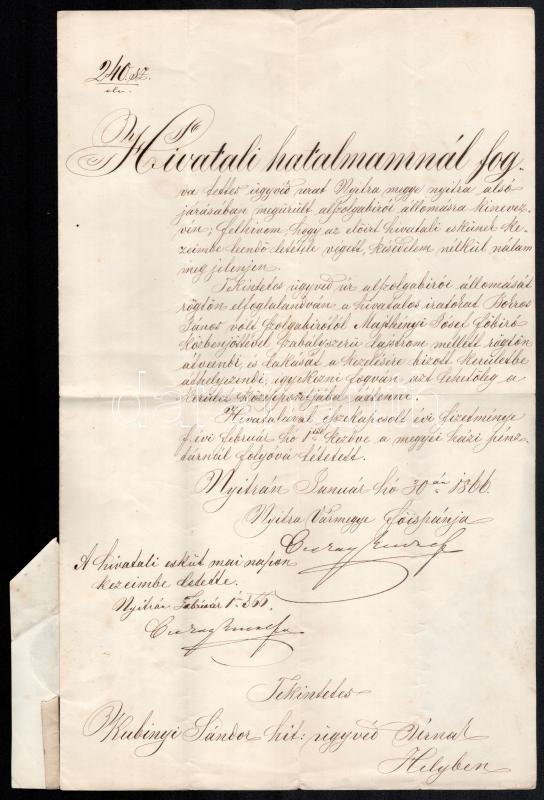 240. sz.
eln.
Hivatali hatalmamnál fog-
va tettes ügyvéd urat Nyitra megye nyitra alsó
járásában megürült alszolgabírói állomásra kinevez-
vén; felhivom, hogy az előirt hivatali eskünek ke-
zeimbe leendő letétele végett, késedelem nélkül nálam
meg jelenjen.
Tekintetes ügyvéd úr alszolgabírói állomását
rögtön elfoglalandván a hivatalos iratokat Borros
János volt szolgabírótól Majthényi József főbíró
közbenjöttével szabályszerű lajstrom mellett rögtön
átveendi, és lakását a kezelésére bízott kerületbe
áthelyezendi, igyekezni fogván azt lehetőleg a
kerület középpontjába áttenni.
Hivatalával összekapcsolt évi fizetménye
f. évi február hó 1től kezdve a megyei házi pénz-
tárnál folyóvá tétetett.
Nyitrán Január hó 30án 1866.
Nyitra Vármegye főispánja
A hivatali esküt mai napon
kezeimbe letette.
Nyitrán Február 1. 866.
Tekintetes
Kubinyi Sándor hit: ügyvéd Úrnak
Helyben